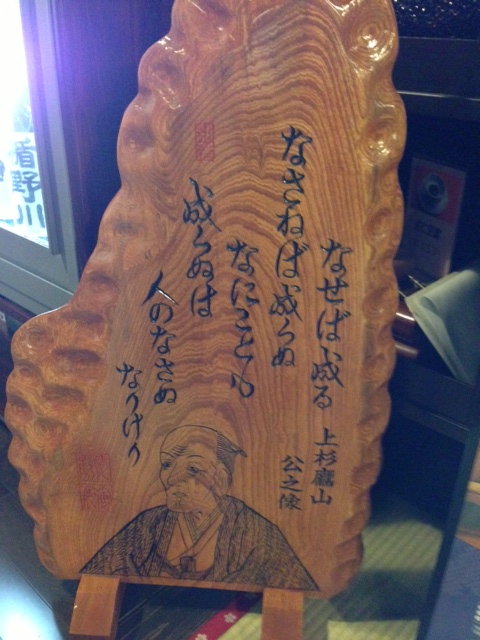 なせば成る
なさねば成らぬ
なにことも
成らぬは
人のなさぬ
なりけり
上杉鷹山
公之像